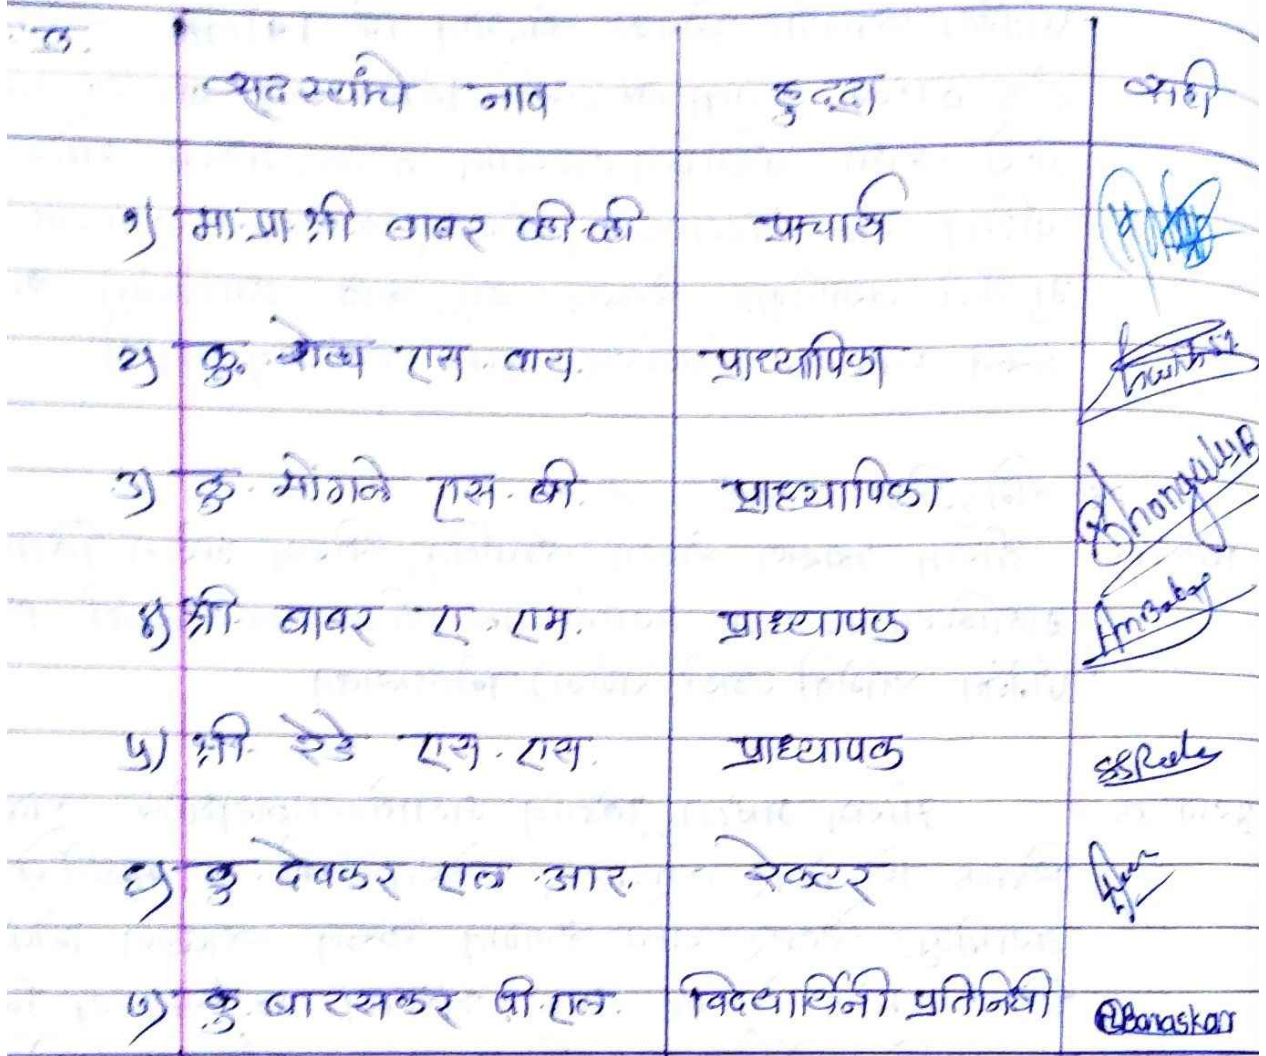 सदस्यांचे नाव हुद्दा सही
१) मा.प्रा.श्री बाबर व्ही.व्ही प्राचार्य
२) कु. शेळ्य एस वाय. प्राध्यापिका
३) कु. भोंगळे एस. बी. प्राध्यापिका Bhongalesb
४) श्री बाबर ए. एम. प्राध्यापक AmBabar
५) श्री. रेडे एस. एस. प्राध्यापक SSRede
६) कु देवकर एल .आर. रेक्टर
७) कु बारसकर पी.एल. विद्यार्थिनी प्रतिनिधी PLBaraskar